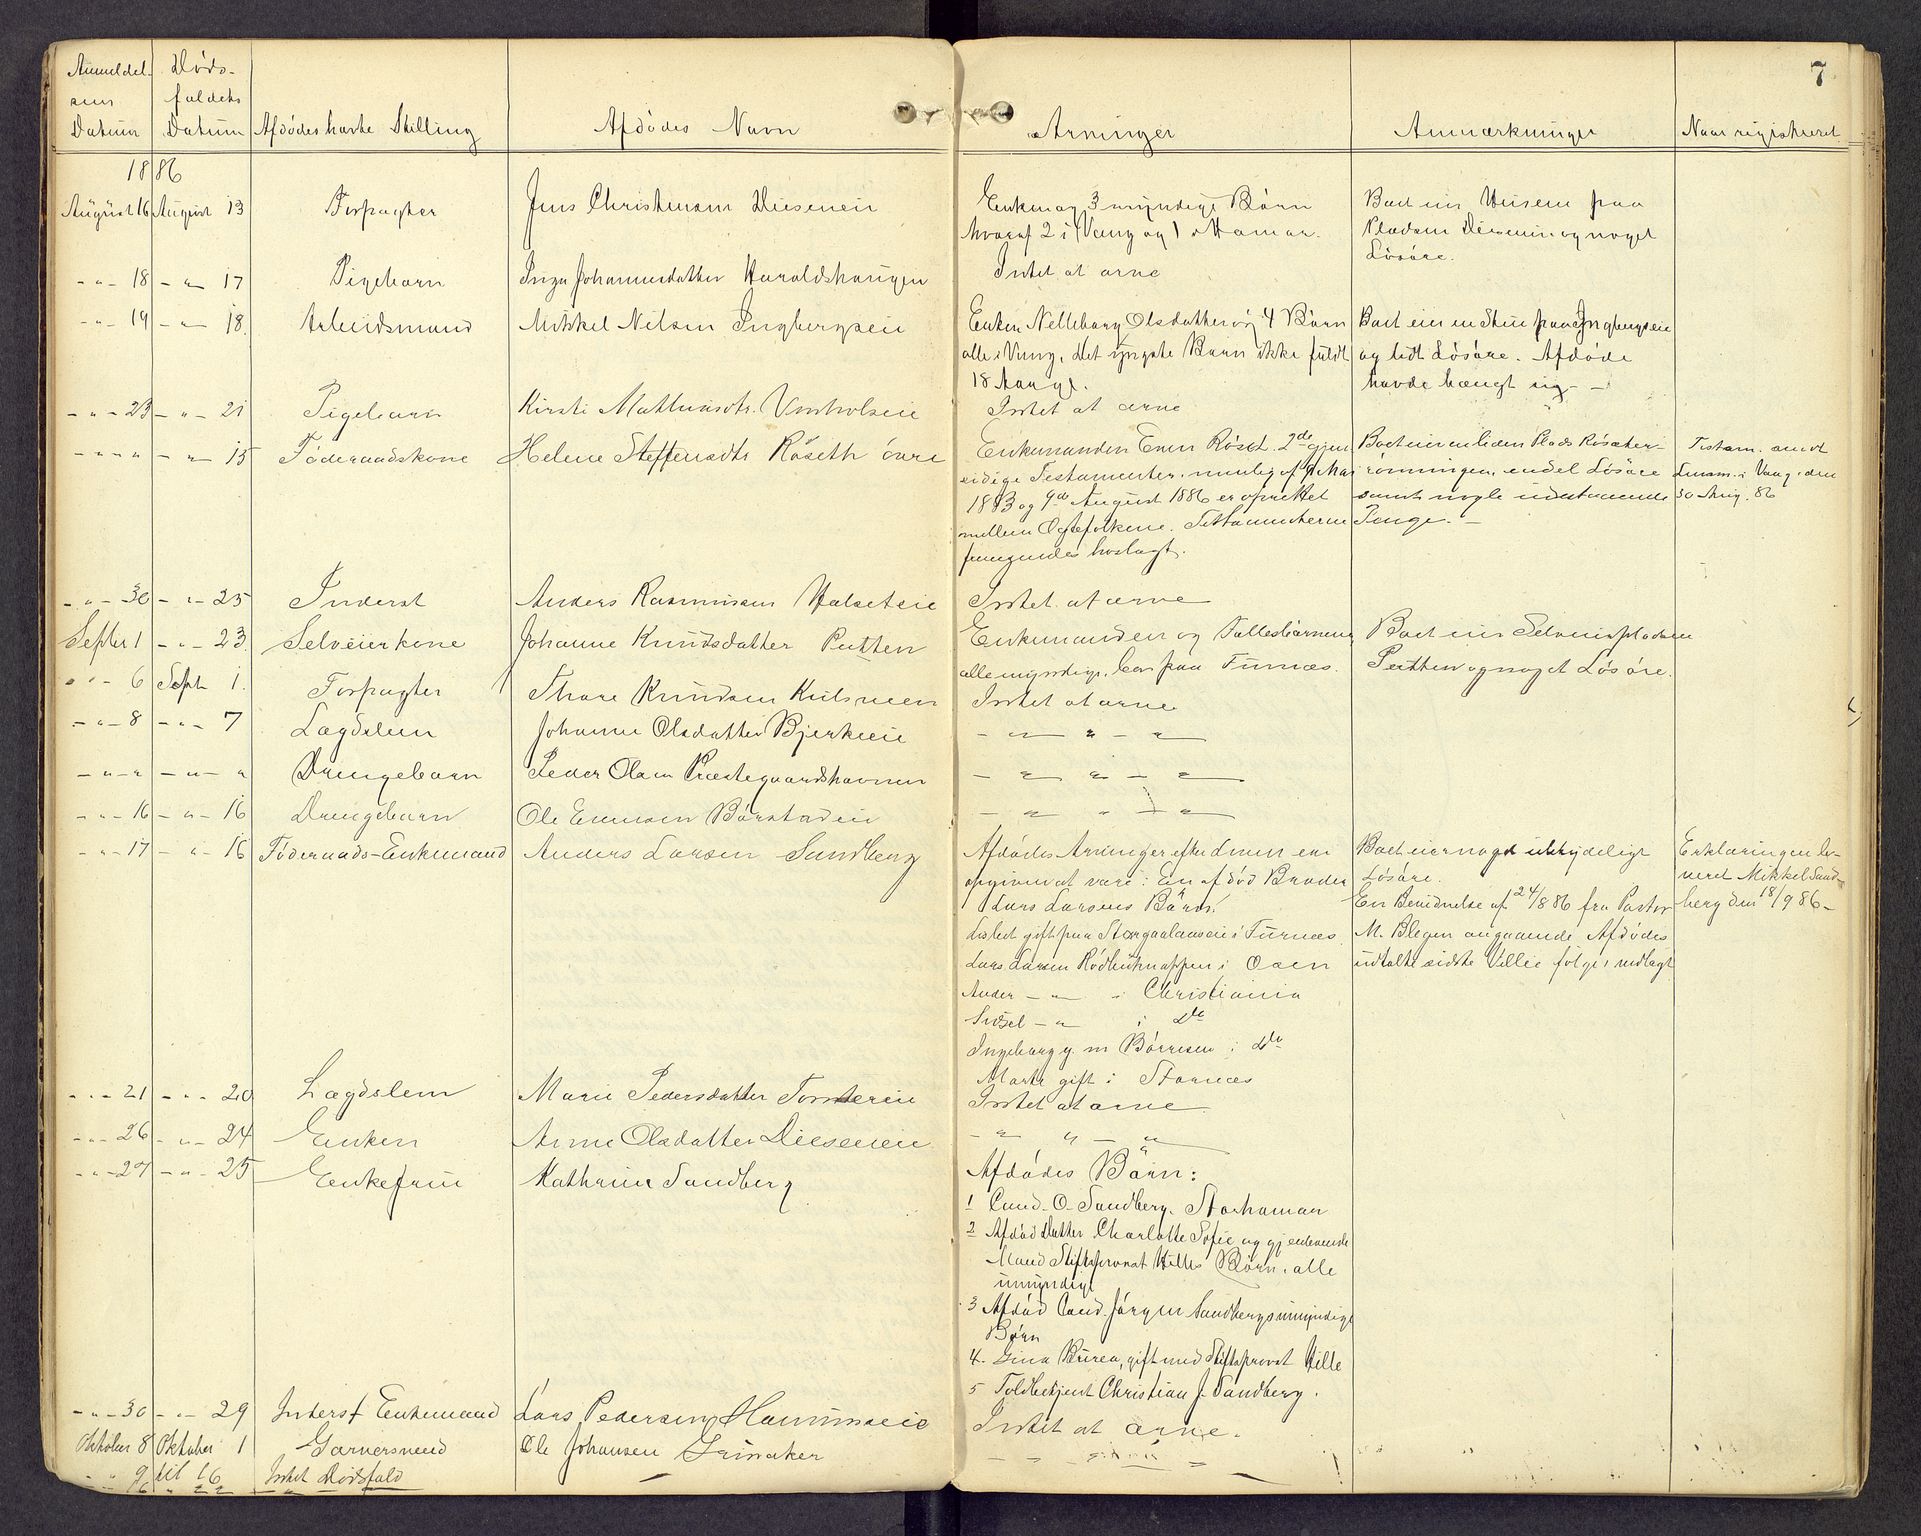 7
Anmeldel- Døds-
sens faldets
Datum Datum Afdødes havte Stilling Afdødes Navn Arvinger Anmærkninger Naar registreret
1886
August 16 August 13 Forpagter Jens Christensen Dieseneie Enken og 3 myndige Børn Boet eier Husene paa
hvoraf 2 i Vang og 1 i Hamar. Pladsen Dieseneie og noget
Løsøre.
- " - 18 - " - 17 Pigebarn Inga Johannesdatter Haraldshaugen Intet at arve
- " - 19 - " - 18. Arbeidsmand Mikkel Nilsen Ingbergseie Enken Nelleborg Olsdatter og 4 Børn Boet eier en Stue paa Ingbergseie
alle i Vang, det yngste Barn ikke fuldt og lidt Løsøre. Afdøde
18 Aar gl. havde hængt sig - -
- " - 23 - " - 21 Pigebarn Kirsti Mathiasdtr. Intet at arve
- " - " - " - 15 Føderaadskone Helene Steffensdtr Røseth øvre Enkemanden Even Røset. 2de gjen- Boet eier en liden Plads Røsæter- Testam. sendt
sidige Testamenter, nemlig af Mai rønningen, endel Løsøre Lensm. i Vang den
1883 og 9de August 1886 er oprettet samt nogle udestaaende 30 Aug. 86
mellem Ægtefolkene. Testamenterne Penge. -
fremsendes hoslagt.
- " - 30 - " - 25 Inderst Anders Rasmussen Halseteie Intet at arve
Septbr 1 - " - 23. Selveierkone Johanne Knudsdatter Putten Enkemanden og Fællesbørnene Boet eier Selveierpladsen
alle myndige, bor paa Furnæs. Putten og noget Løsøre.
" - 6 Septb 1. Forpagter Thore Knudsen Intet at arve
- " - 8 - " - 7 Lægdslem Johanne Olsdatter Bjerkeeie - " - " - "
- " - " - " - " Drengebarn Peder Olsen Præstegaardshavnen - " - " - "
- " - 16 - " - 16 Drengebarn Ole Evensen Børstadeie - " - " - "
- " - 17 - " - 16 Føderaads-Enkemand Anders Larsen Sandberg Afdødes Arvinger efter ere Boet eier noget ubetydeligt Erklæringen le-
opgivne at være: En afdød Broder Løsøre. veret Mikkel Sand-
Lars Larsens Børn: En Benidnelse af 24/8 86 fra Pastor berg den 18/9 86 -
Lisbet gift paa i Furnæs. M. Blegen angaaende Afdødes
Lars Larsen i Oaen udtalte sidste Villie følger vedlagt
Anders - " - i Christiania
Sidsel - " i do
Ingeborg g. m Børresen i do
Marthe gift i Stornæs
- " - 21 - " - 20 Lægdslem Marie Pedersdatter Intet at arve
- " - 26 - " - 24 Enken Anne Olsdatter Dieseneie - " " - "
- " - 27 - " - 25 Enkefrue Kathrine Sandberg Afdødes Børn:
1 Cand. O. Sandberg, Storhamar
2 Afdød Datter Charlotte Sofie og gjenlevende
Mand Stiftsprovst Hilles Børn, alle
umyndige
3 Afdød Cand. Jørgen Sandbergs umyndige
Børn
4. Gina , gift med Stiftsprovst Hille
5 Toldbetjent Christian J. Sandberg.
- " - 30 - " - 29 Inderst Enkemand Lars Pedersen Intet at arve.
Oktober 8 Oktober 1 Garversvend Ole Johansen Grinaker - " -
" " 9 til 16 Intet Dødsfald —